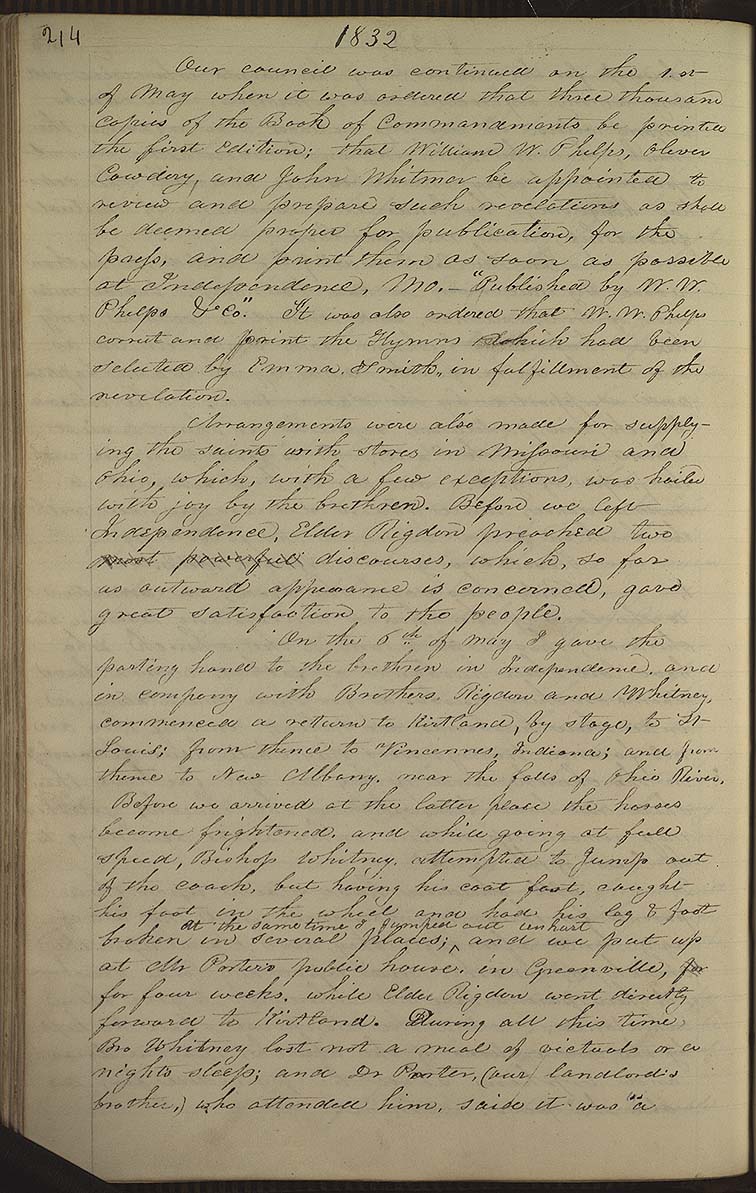 214 1832
Our council was continued on the 1.st
of May when it was ordered that three thousand
copies of the Book of Commandments be printed
the first edition; that William W. Phelps, Oliver
Cowdery, and John Whitmer be appointed to
review and prepare such revelations as shall
be deemed proper for publication, for the
press, and print them as soon as possible
at Independence, Mo. — "Published by W. W.
Phelps & Co." It was also ordered that W. W. Phelps
correct and print the Hymns which had been
selected by Emma. Smith, in fulfillment of the
revelation.
Arrangements were also made for supply-
ing the saints with stores in Missouri and
Ohio, which, with a few exceptions, was hailed
with joy by the brethren. Before we left
Independence, Elder Rigdon preached two
most powerful discourses, which, so far
as outward appearance is concerned, gave
great satisfaction to the people.
On the 6th of May I gave the
parting hand to the brethren in Independence, and
in company with Brothers. Rigdon and Whitney,
commenced a return to Kirtland, by stage, to St
Louis; from thence to Vincennes, Indiana; and from
thence to New Albany. near the falls of Ohio River.
Before we arrived at the latter place the horses
become frightened. and while going at full
speed, Bishop Whitney. attempted to Jump out
of the coach, but having his coat fast, caught
his foot in the wheel and had his leg & foot
at the same time I Jumped out unhurt
broken in several places; ^ and we put up
at Mr Porter's public house. in Greenville, for
for four weeks. while Elder Rigdon went directly
forward to Kirtland. During all this time,
Bro Whitney lost not a meal of victuals or a
nights sleep; and Dr Porter, (our landlord's
brother,) who attended him, said it was "a